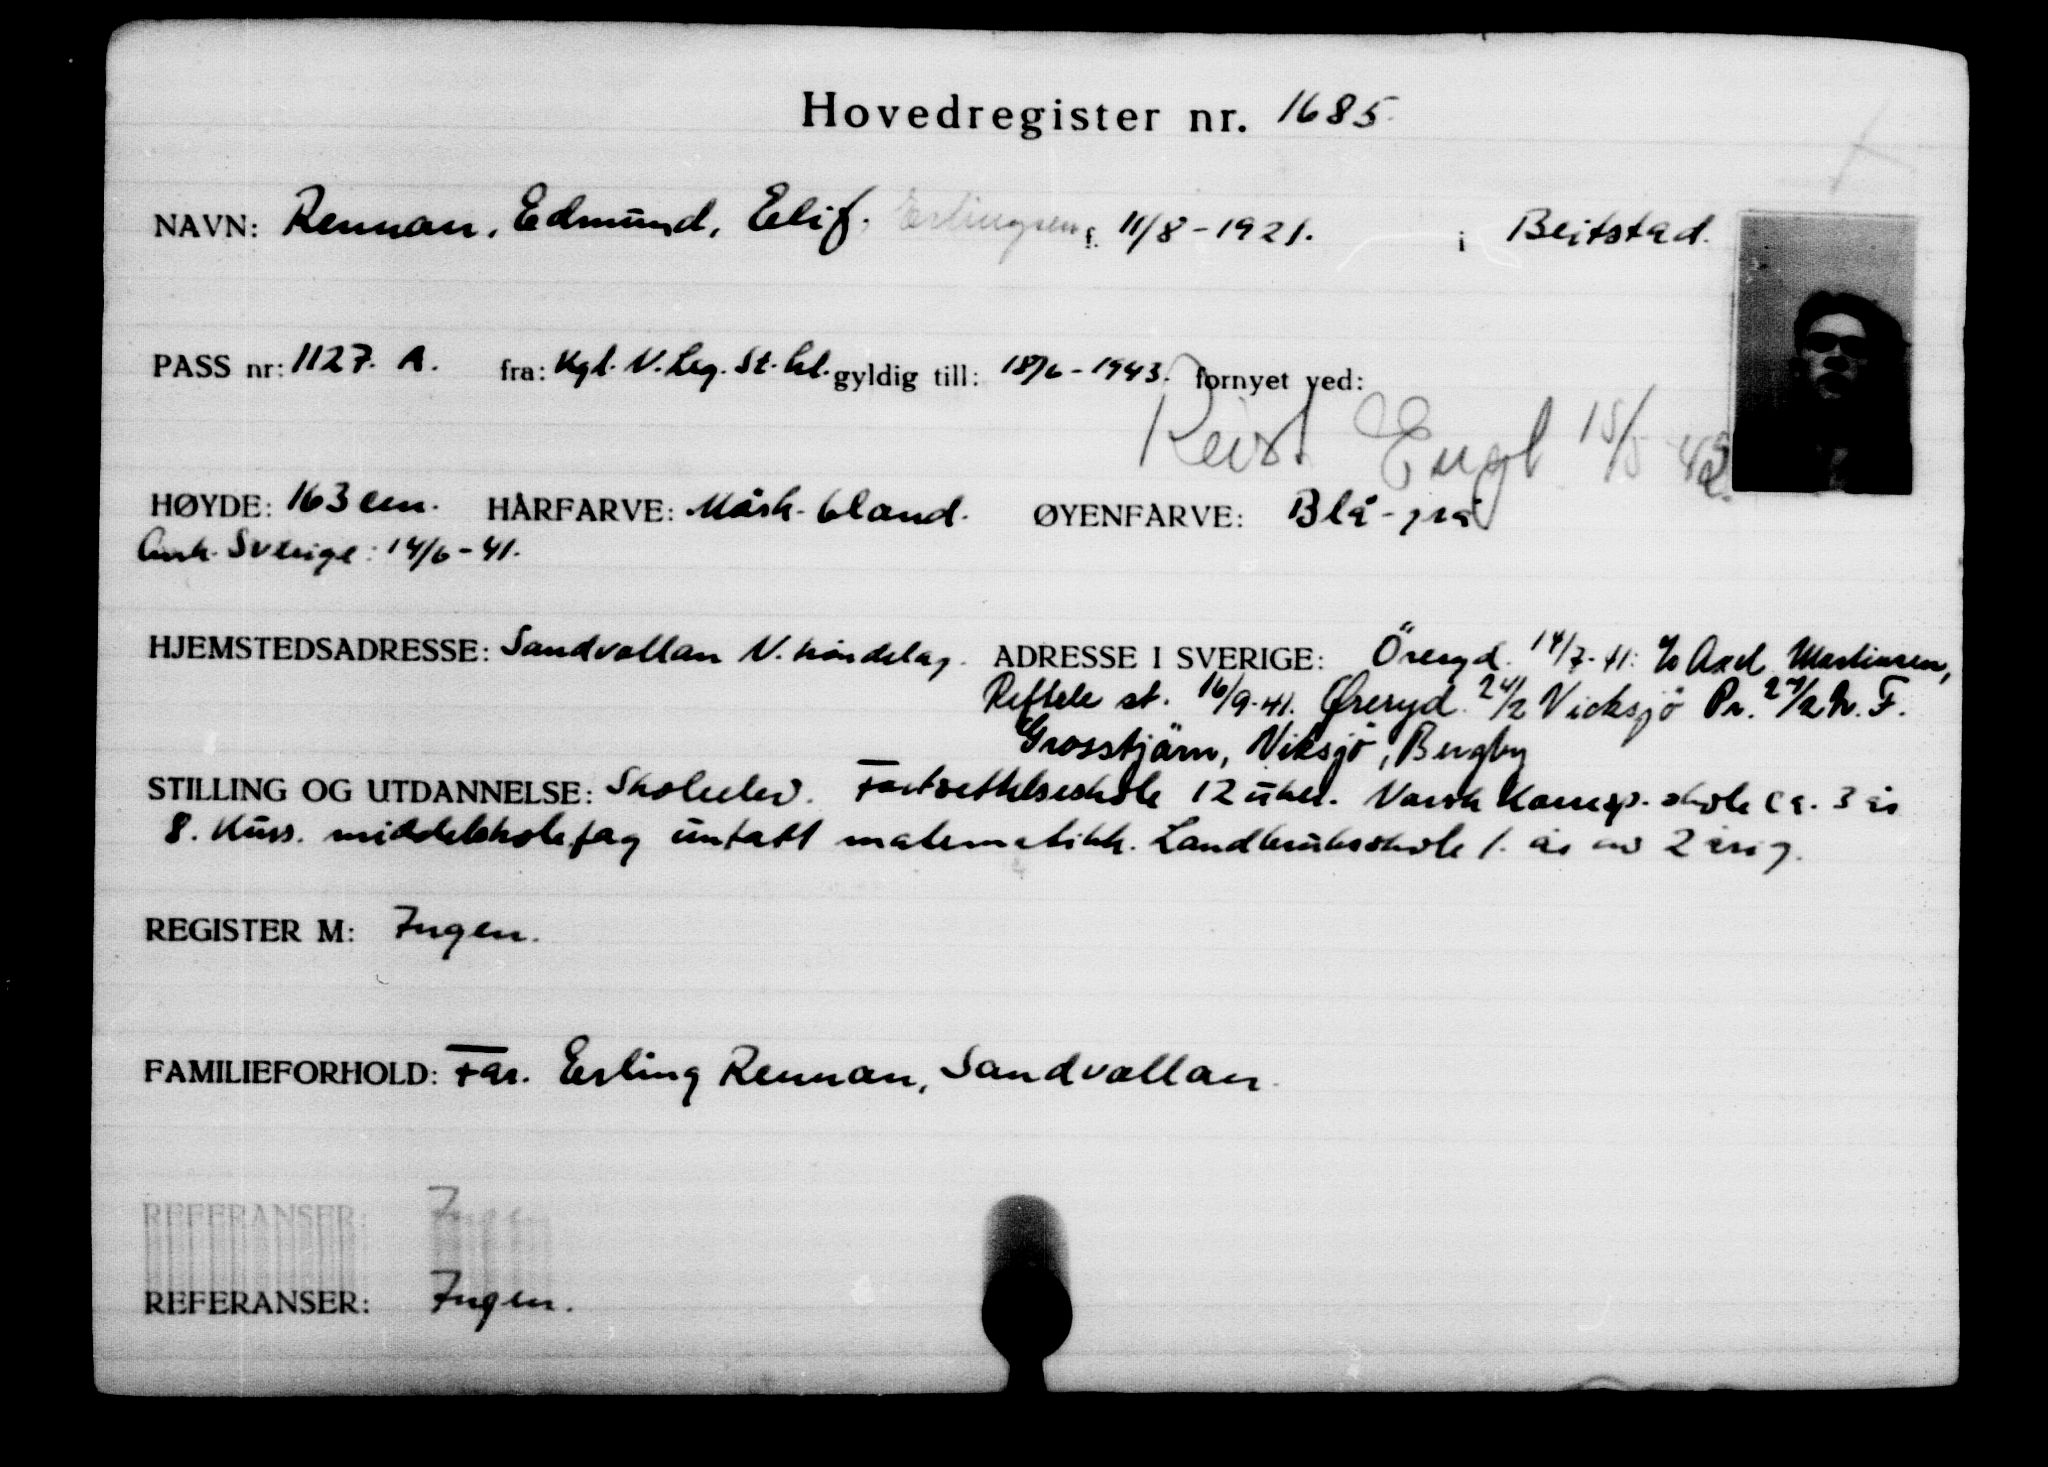 Hovedregister nr. 1685.
NAVN: Rennan, Edmund, Elif. Erlingsen f. 11/8-1921. i Beitstad.
PASS nr: 1127. A. fra: Kgl. N. Leg. St. hl. gyldig till: 18/6-1943. fornyet ved:
Reist Engl 15/5 42.
HØYDE: 163 cm. HÅRFARVE: Mørk-blond. ØYENFARVE: Blå-grå
Ank. Sverige: 14/6-41.
HJEMSTEDSADRESSE: Sandvollan N. Trøndelag. ADRESSE I SVERIGE: Öreryd. 14/7-41: c/o Axel Martinsen,
Reftele st. 16/9-41. Øreryd. 24/2 Vicksjö Pr. 27/2 N. F.
Grosstjärn, Viksjö, Bergby
STILLING OG UTDANNELSE: Skoleelev. Fortsettelseskole 12 uker. Norsk Korresp. skole ca. 3 år
8. Kurs. middelskolefag untatt matematikk. Landbruksskole 1. år av 2 årig.
REGISTER M: Ingen.
FAMILIEFORHOLD: Far. Erling Rennan, Sandvollan.
REFERANSER: Ingen
REFERANSER: Ingen.